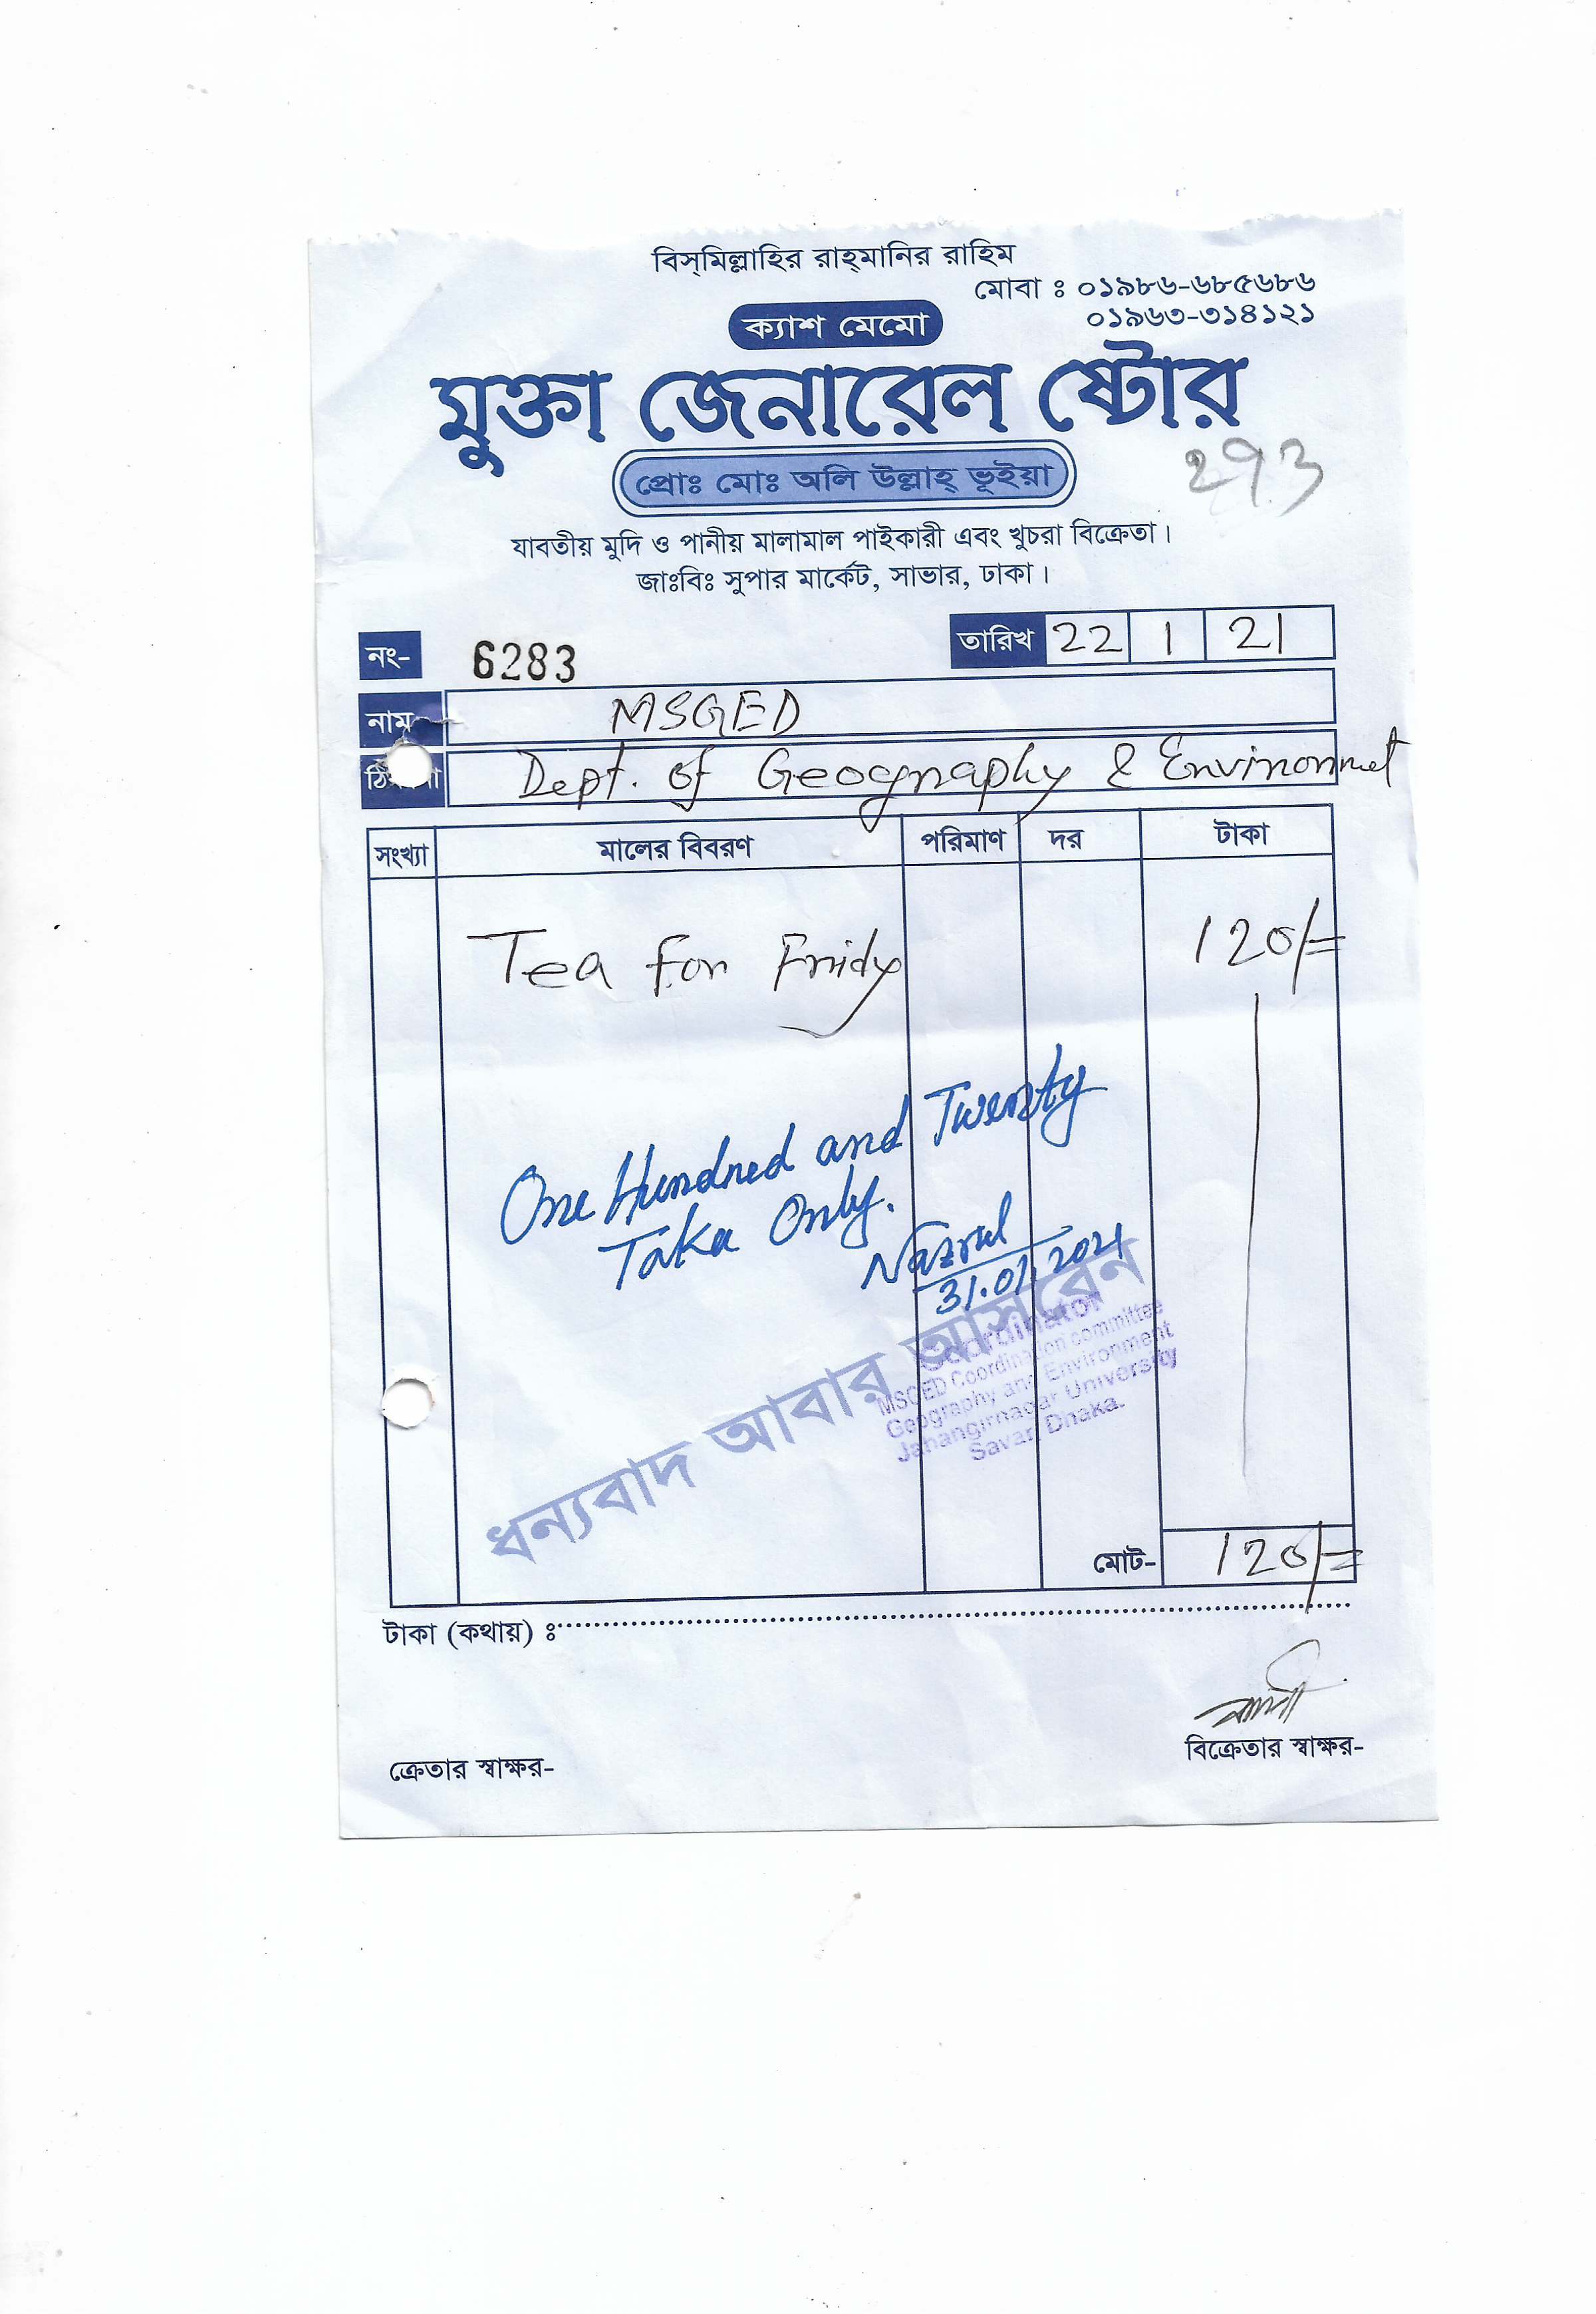 বিস্‌মিল্লাহির রাহ্‌মানির রাহিম
মোবা ঃ ০১৯৮৬-৬৮৫৬৮৬
০১৯৬৩-৩১৪১২১
ক্যাশ মেমো
মুক্তা জেনারেল ষ্টোর
293
প্রোঃ মোঃ অলি উল্লাহ্ ভূইয়া
যাবতীয় মুদি ও পানীয় মালামাল পাইকারী এবং খুচরা বিক্রেতা।
জাঃবিঃ সুপার মার্কেট, সাভার, ঢাকা।
নং- 6283 তারিখ 22 1 21
নাম MSGED
Dept. of Geography & Environmet
সংখ্যা মালের বিবরণ পরিমাণ দর টাকা
Tea for Fridy 120/=
One Hundred and Twenty
Taka Only.
Nazrul
31.01.2021
ধন্যবাদ আবার আসবেন
Coordinator
MSGED Coordination committee
Geography and Environment
Jahangirnagar University
Savar, Dhaka.
মোট- 120/=
টাকা (কথায়) ঃ
বিক্রেতার স্বাক্ষর-
ক্রেতার স্বাক্ষর-